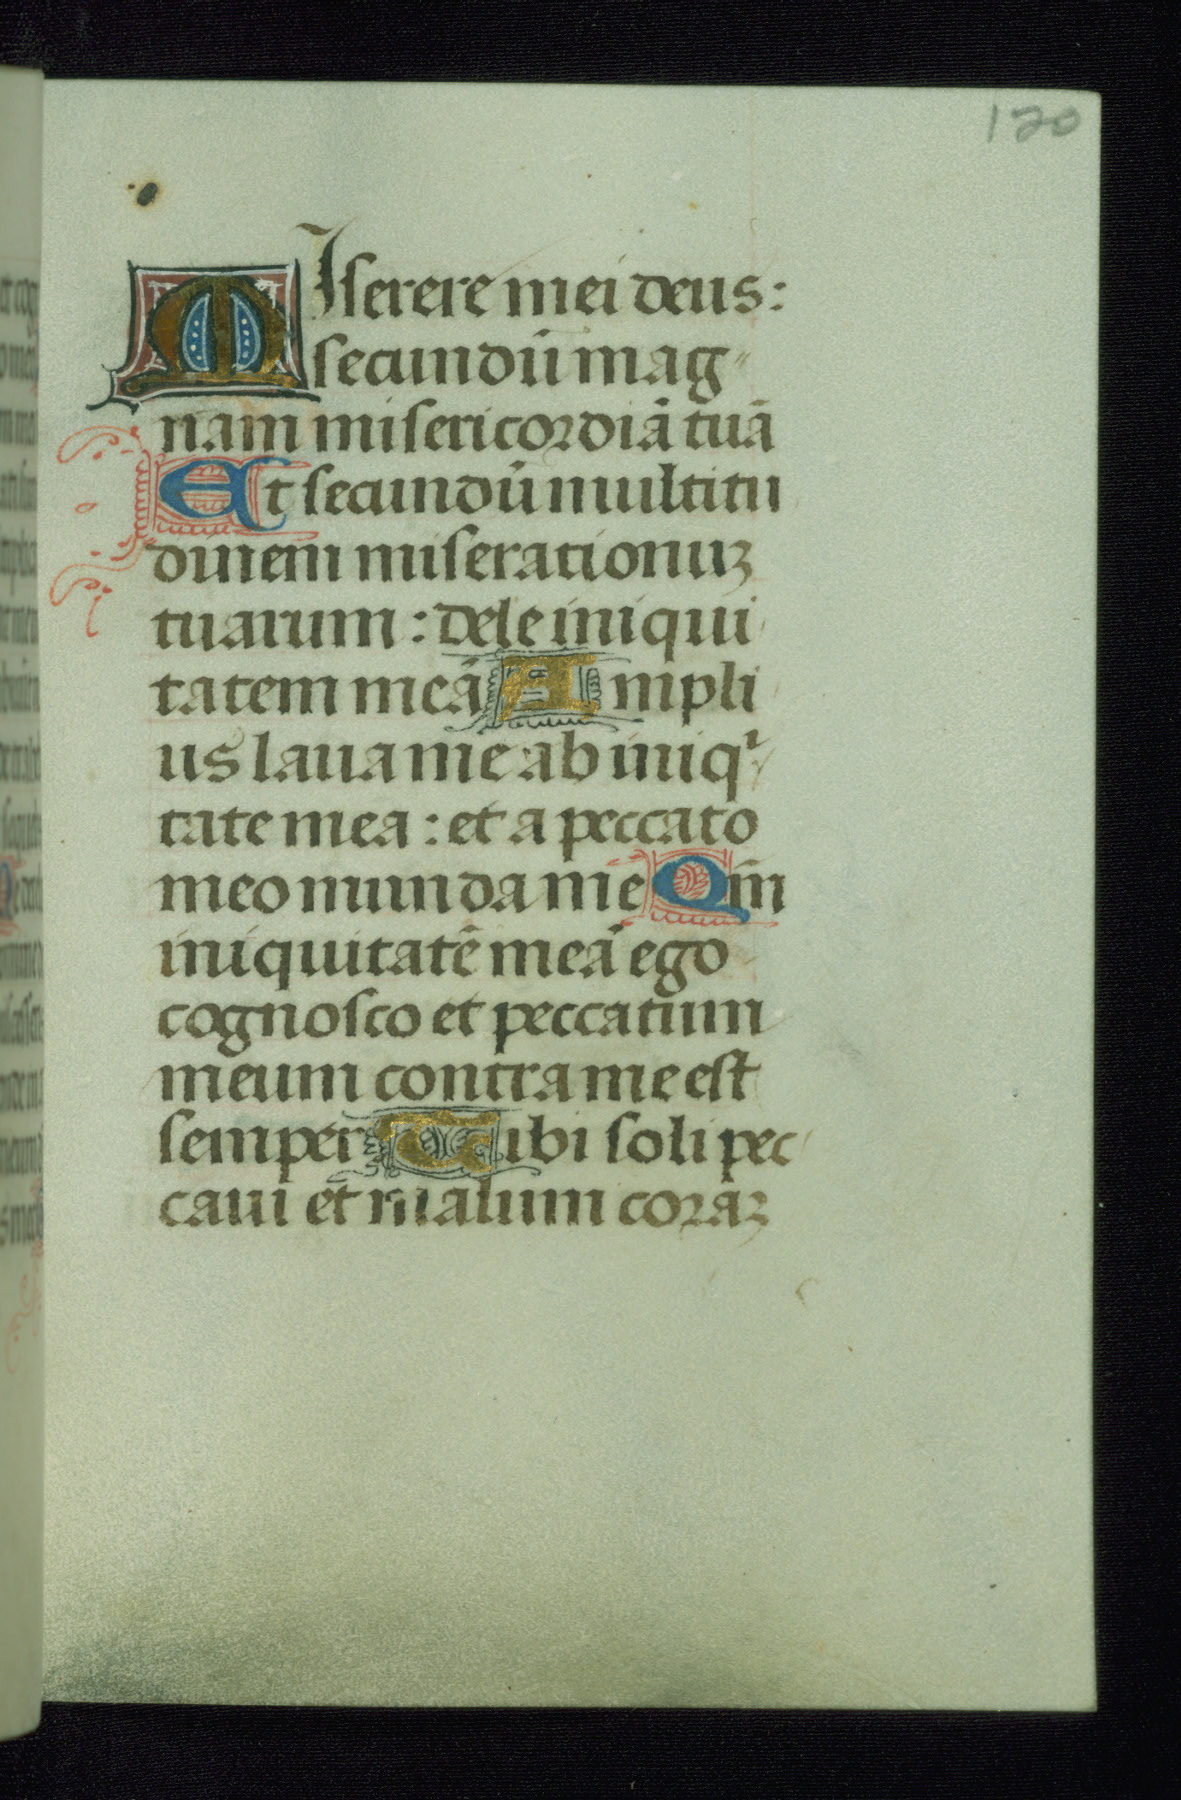 120
Miserere mei deus:
secundū mag
nam misericordiā tuā
Et secundū multitu
dinem miserationuꝫ
tuarum: dele iniqui
tatem meā Ampli
us laua me ab iniqͥ
tate mea: et a peccato
meo munda me Qm̄
iniquitatē meā ego
cognosco et peccatum
meum contra me est
semper Tibi soli pec
caui et malum coraꝫ